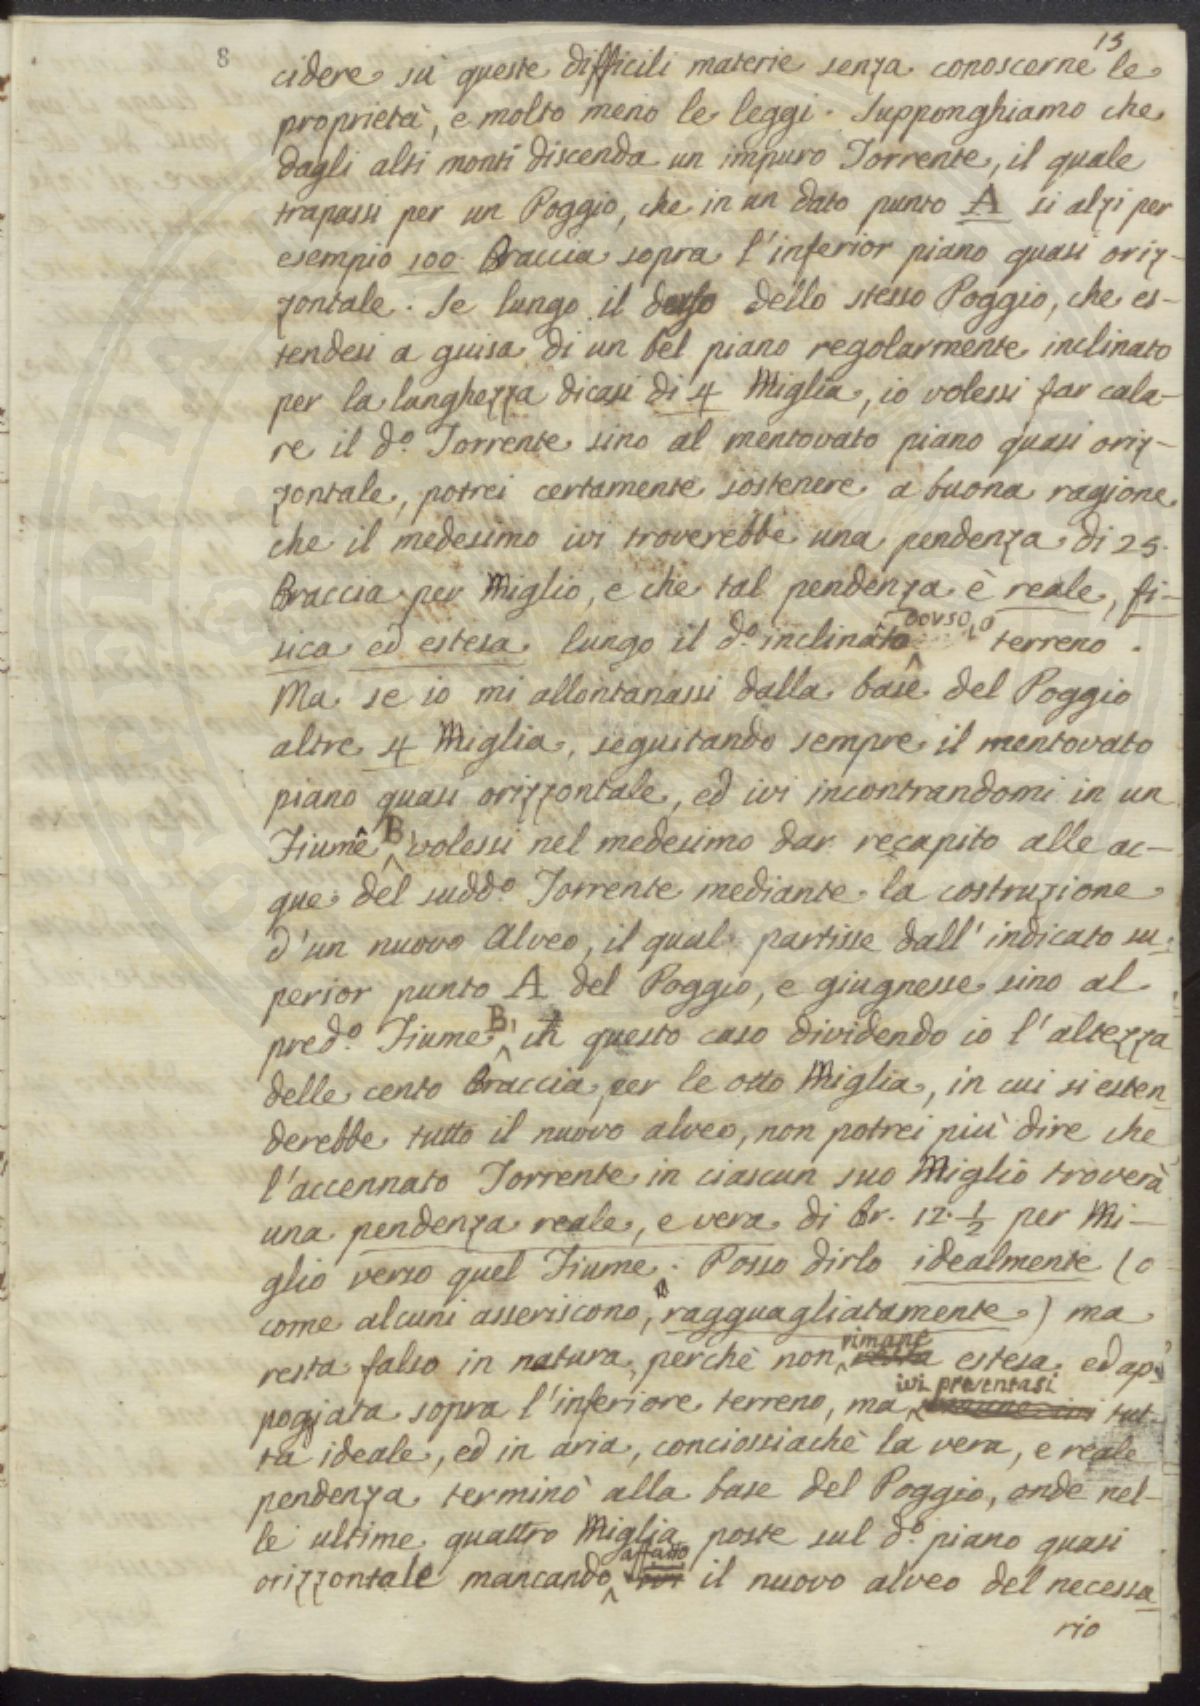 8
13
cidere sù queste difficili materie senza conoscerne le
proprietà, e molto meno le leggi. Supponghiamo che
dagli alti monti discenda un impuro Torrente, il quale
trapassi per un Poggio, che in un dato punto A si alzi per
esempio 100 Braccia sopra l'inferior piano quasi oriz-
zontale. Se lungo il dorso dello stesso Poggio, che es-
tendesi a guisa di un bel piano regolarmente inclinato
per la lunghezza dicasi di 4 Miglia, io volessi far cala-
re il d.o Torrente sino al mentovato piano quasi oriz-
zontale, potrei certamente sostenere a buona ragione
che il medesimo ivi troverebbe una pendenza di 25.
Braccia per Miglio, e che tal pendenza è reale, fi-
sica ed estesa lungo il d.o inclinato dorso, o terreno.
Ma se io mi allontanassi dalla base del Poggio
altre 4 Miglia, seguitando sempre il mentovato
piano quasi orizzontale, ed ivi incontrandomi in un
Fiume B, volessi nel medesimo dar recapito alle ac-
que del sudd.o Torrente mediante la costruzione
d'un nuovo Alveo, il qual partisse dall'indicato su-
perior punto A del Poggio, e giugnesse sino al
pred.o Fiume B, in questo caso dividendo io l'altezza
delle cento Braccia per le otto Miglia, in cui si esten-
derebbe tutto il nuovo alveo, non potrei più dire che
l'accennato Torrente in ciascun suo Miglio troverà
una pendenza reale, e vera di Br. 12 1/2 per Mi-
glio verso quel Fiume. Posso dirlo idealmente (o
come alcuni asseriscono, ragguagliatamente) ma
resta falso in natura, perchè non rimane estesa ed ap-
poggiata sopra l'inferiore terreno, ma ivi presentasi tut-
ta ideale, ed in aria, conciossiachè la vera, e reale
pendenza terminò alla base del Poggio, onde nel-
le ultime quattro Miglia poste sul d.o piano quasi
orizzontale mancando affatto il nuovo alveo del necessa-
rio